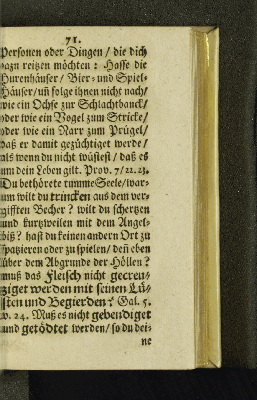 71.
Personen oder Dingen / die dich
dazu reitzen möchten : Hasse die
Hurenhäuser / Bier- und Spiel-
Häuser / uñ folge ihnen nicht nach /
wie ein Ochse zur Schlachtbanck /
oder wie ein Vogel zum Stricke /
oder wie ein Narr zum Prügel /
daß er damit gezüchtiget werde /
als wenn du nicht wüstest / daß es
um dein Leben gilt. Prov. 7 / 22. 23.
Du bethörete tumme Seele / war-
um wilt du trincken aus dem ver-
gifften Becher ? wilt du schertzen
und kurtzweilen mit dem Angel-
biß ? hast du keinen andern Ort zu
spatzieren oder zu spielen / deñ eben
über dem Abgrunde der Höllen ?
muß das Fleisch nicht gecreu-
ziget werden mit seinen Lü-
sten und Begierden ? Gal. 5.
v. 24. Muß es nicht gebendiget
und getödtet werden / so du dei-
ne